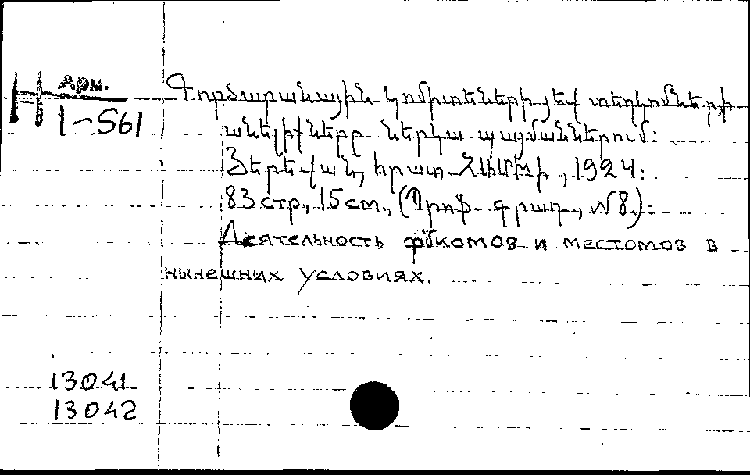 Арм.
1-561
Գործարանային կոմիտեների յեվ տեղկոմների
անելիքները ներկա պայմաններում:
Յերեվան, հրատ. ՀԱՄԽԻ, 1924:
83 стр., 15 cm., (Պրոֆ. գրադ., №8.):
Деятельность фабкомов и месткомов в
нынешних условиях.
13041
13042